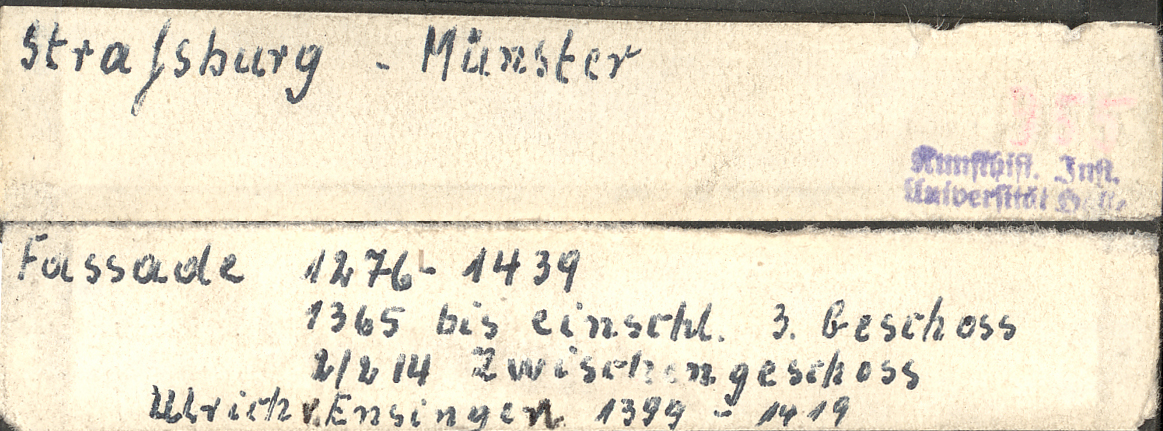 Straſsburg - Münster
915
Kunsthist. Inst.
Universität
Fassade 1276- 1439
1365 bis einschl. 3. Geschoss
2/2 14 Zwischengeschoss
Ulrich v. Ensingen 1399 - 1419